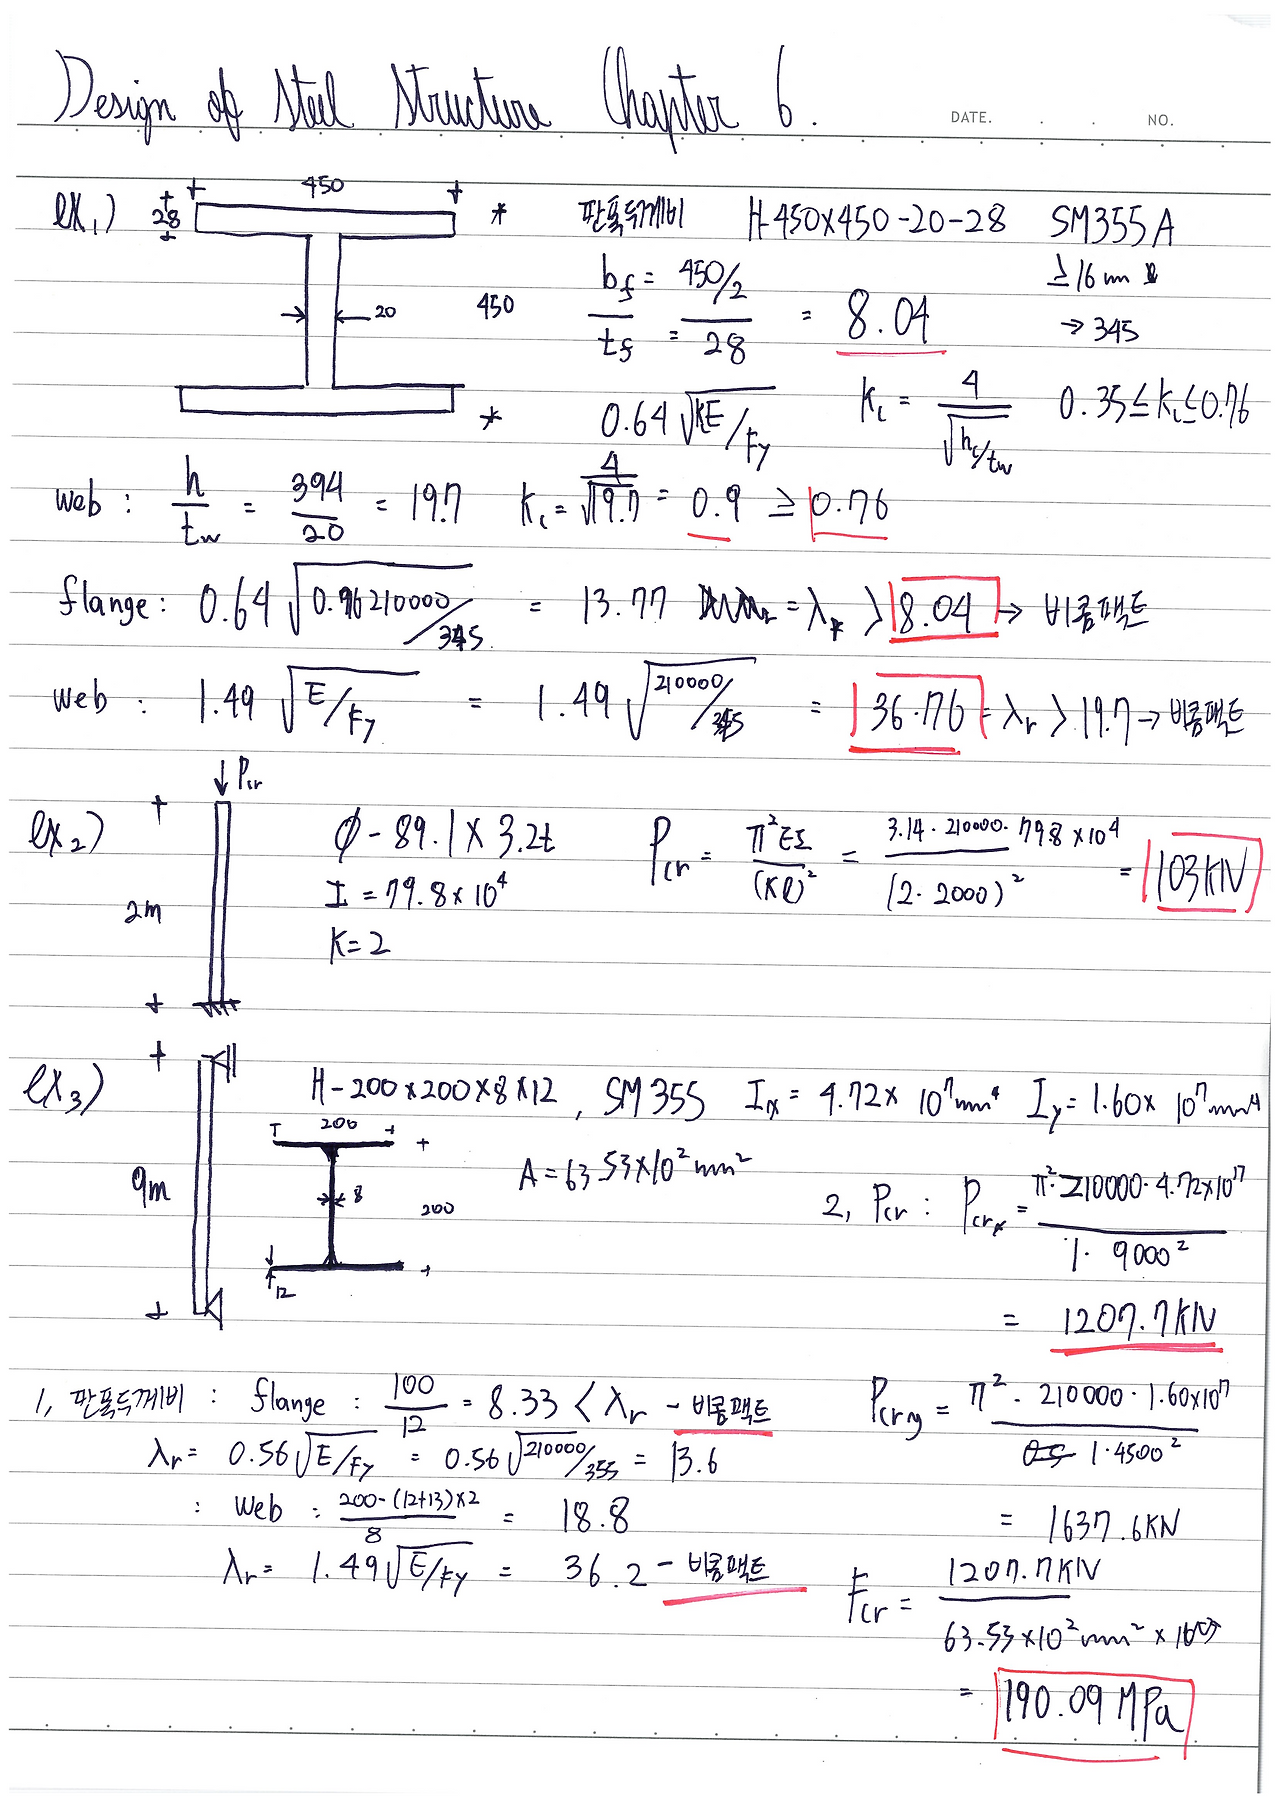 Design of Steel Structure Chapter 6.
DATE. . . NO.
ex1) 28 450 20 450 * 판폭두께비 H-450×450-20-28 SM355A
bf/tf = 450/2 / 28 = 8.04
≥16mm
→ 345
* 0.64√KE/Fy Kc = 4/√h/tw 0.35≤Kc≤0.76
web : h/tw = 394/20 = 19.7 Kc = 4/√19.7 = 0.9 ≥ 0.76
flange : 0.64√0.76 210000/345 = 13.77 = λr > 8.04 → 비콤팩트
web : 1.49√E/Fy = 1.49√210000/345 = 36.76 = λr > 19.7 → 비콤팩트
ex2) Pcr 2m
φ-89.1×3.2t
I = 79.8×10⁴
K=2
Pcr = π²EI/(Kl)² = 3.14·210000·79.8×10⁴/(2·2000)² = 103KN
ex3) 9m
H-200×200×8×12, SM355 Ix = 4.72×10⁷mm⁴ Iy = 1.60×10⁷mm⁴
200 8 200 12
A = 63.53×10²mm²
2, Pcr : Pcrx = π²·210000·4.72×10⁷/1·9000²
= 1207.7KN
1, 판폭두께비 : flange : 100/12 = 8.33 < λr - 비콤팩트
λr = 0.56√E/Fy = 0.56√210000/355 = 13.6
: web : 200-(12+13)×2/8 = 18.8
λr = 1.49√E/Fy = 36.2 - 비콤팩트
Pcry = π²·210000·1.60×10⁷/1·4500²
= 1637.6KN
Fcr = 1207.7KN/63.53×10²mm²
= 190.09MPa